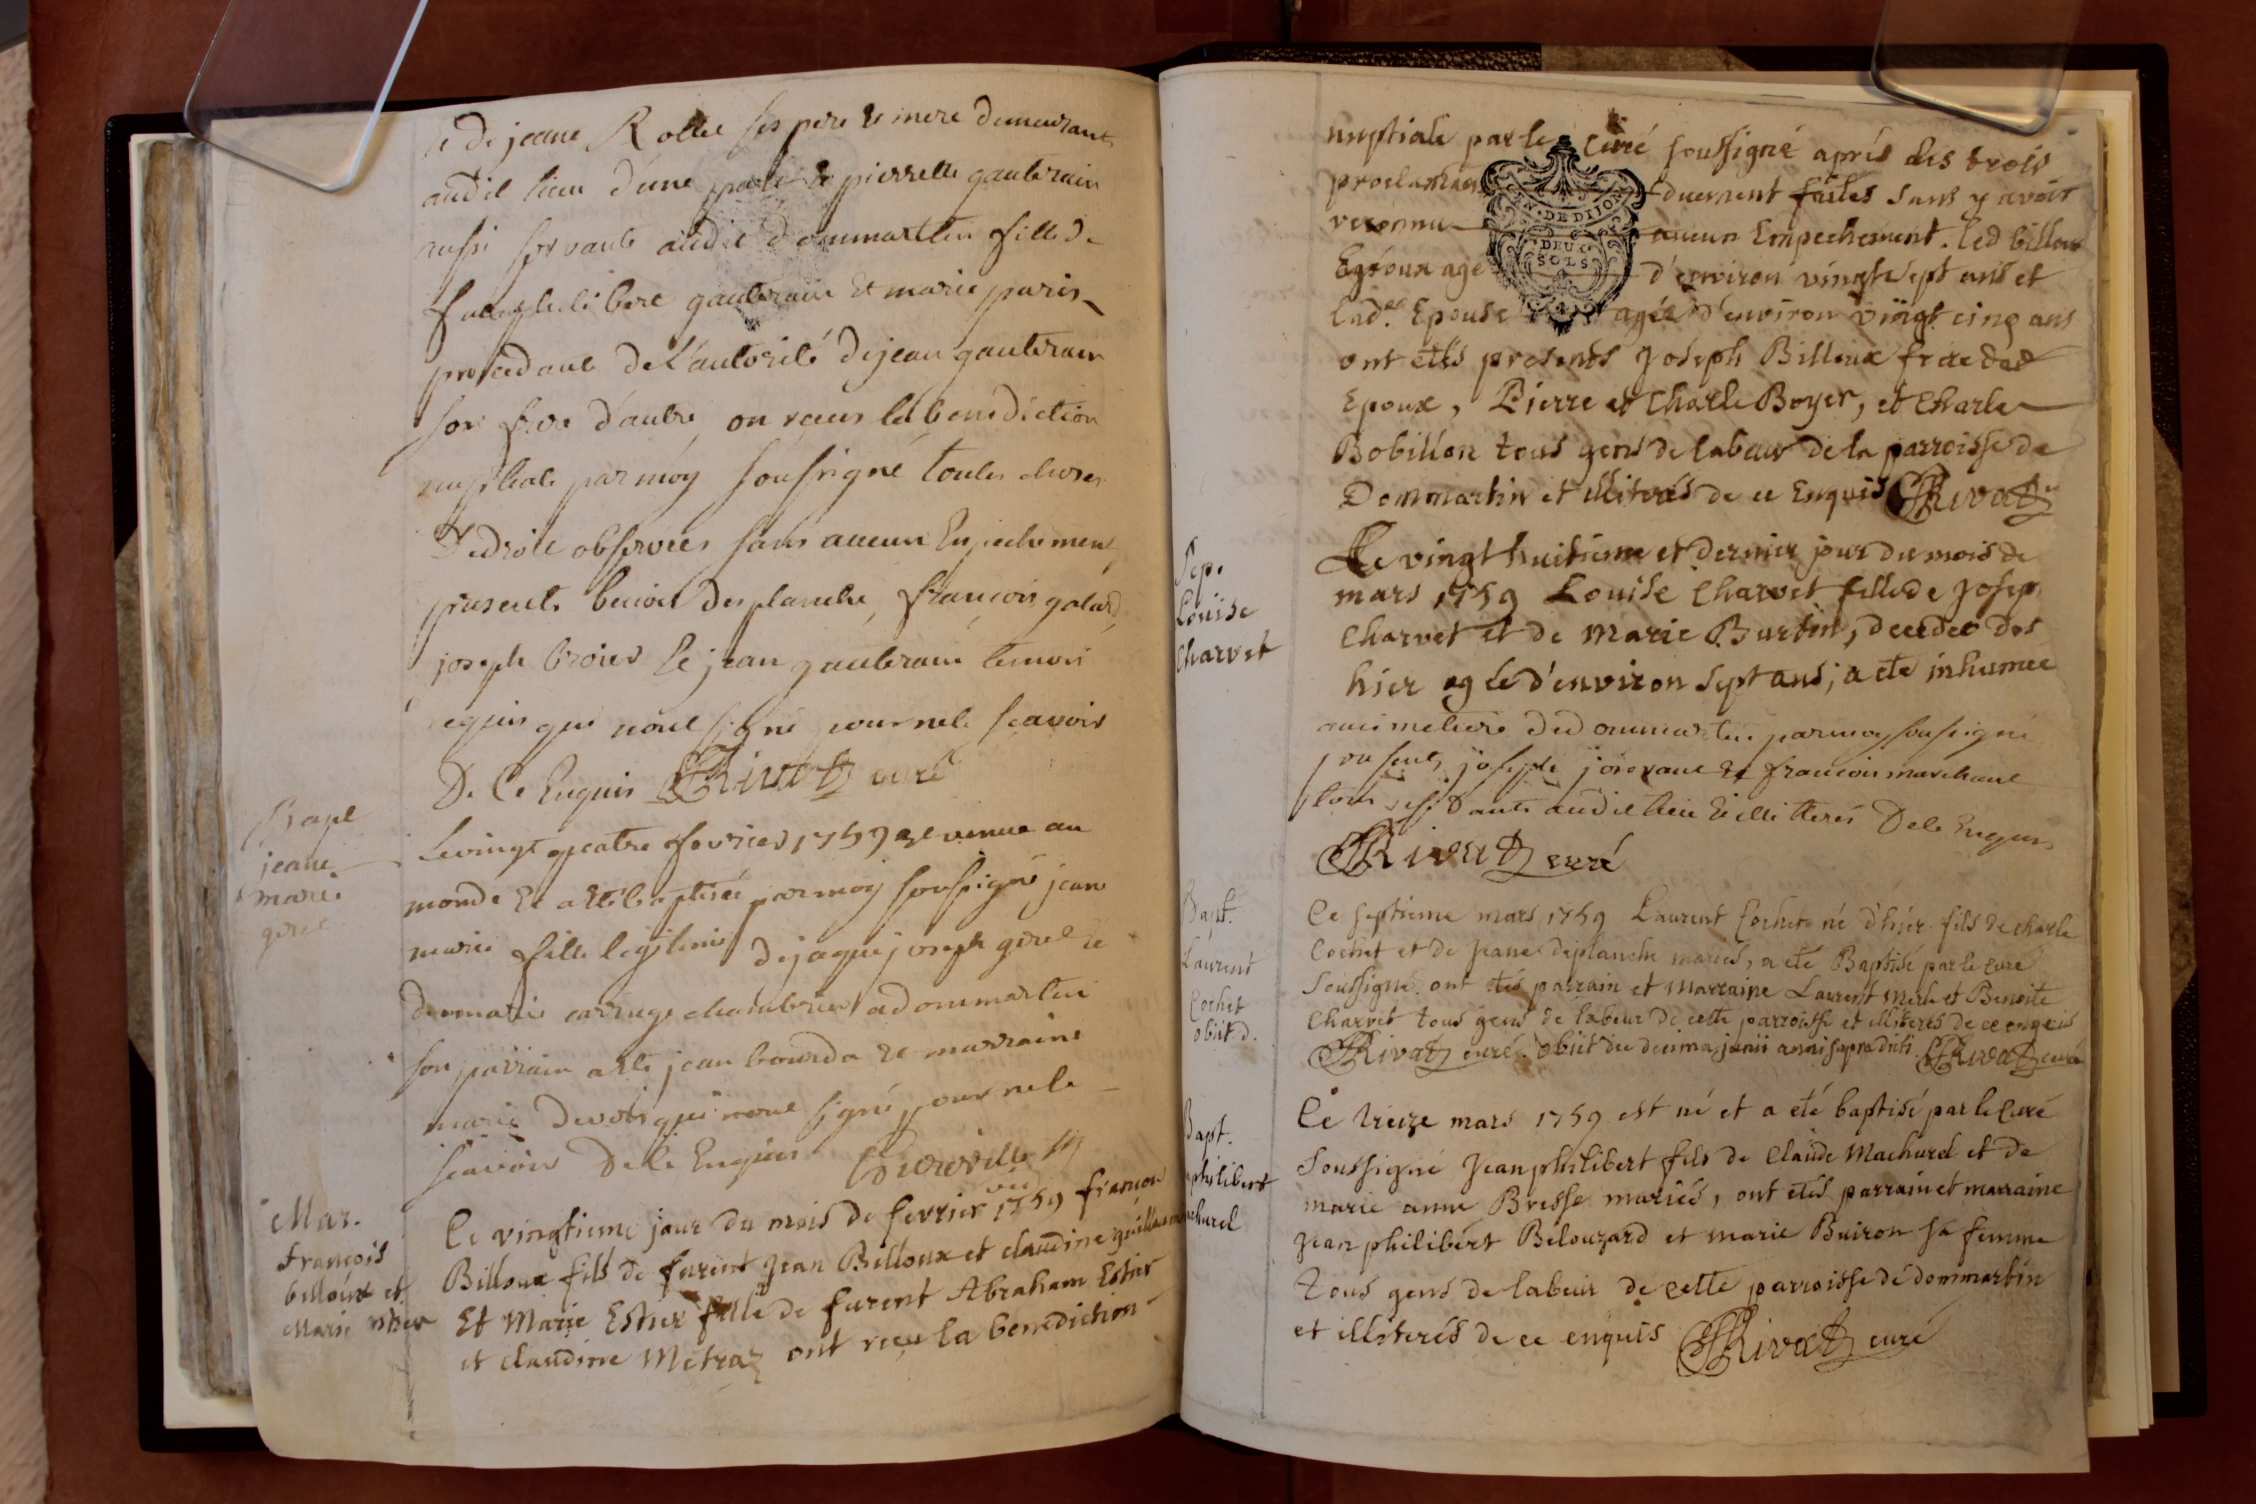 et de jeane Rollet ses pere et mere demeurants
audit lieu d'une part et pierrette gauterain
aussi servante audit dommartin fille de
feu philibert gauterain et marie paris
procedant de l'autorité de jean gauterain
son frere d'autre, on receu la benediction
nuptiale par moy soussigné toutes choses
de droit observées sans aucun Empechement
presents benoit desplanche, françois galard,
joseph broier et jean gauterain temoins
requis qui n'ont signé pour ne le scavoir
De Ce Enquis Rivat curé
Bapt
jeane
marie
girel
Le vingt quatre fevrier 1759 est venue au
monde et a été baptisée par moy soussigné jeane
marie fille legitime de jaque joseph girel et
de marie carruge chambrier a dommartin
son parrain a été jean bourda et marraine
marie devots qui n'ont signé pour ne le
scavoir De Ce Enquis
Mar.
François
billoux et
Marie Estier
Ce vingtieme jour du mois de fevrier 1759 françois
Billoux fils de furent Jean Billoux et claudine guillaumo
Et Marie Estier fille de furent Abraham Estier
et claudine Metraz ont reçu la benediction
nuptiale par le curé soussigné aprés les trois
proclamations duement faites sans y avoir
reconnu aucun Empechement. led billoux
Epoux agé d'environ vingt sept ans et
lad.e Epouse agée d'environ vingt cinq ans
ont etés presents Joseph Billoux frere dud
Epoux, Pierre et Charle Boyer, et Charle
Bobillon tous gens de labeur de la parroisse de
Dommartin et illiterés de ce Enquis Rivat
N. DE DIJON
DEUX
SOLS
Sep.
Louise
Charvet
Le vingt huitieme et dernier jour du mois de
mars 1759 Louise Charvet fille de Josep
Charvet et de Marie Burtin, decedeé des
hier ageé d'environ sept ans, a eté inhumée
au cimetiere de dommartin par moy soussigné
presents joseph et françois marchant
tous audit lieu et illiterés De Ce Enquis
Rivat curé
Bapt.
Laurent
Cochet
obiit d.
Ce septieme mars 1759 Laurent Cochet né d'hier fils de charle
Cochet et de Jeane deplanche mariés, a eté Baptisé par le curé
Soussigné. ont etés parrain et marraine Laurent Merle et Benoite
Charvet tous gens de labeur de cette parroisse et illiterés de ce enquis
Rivat curé. obiit die decima junii anni supradicti. Rivat curé
Bapt.
philibert
churel
Ce treize mars 1759 est né et a eté baptisé par le Curé
Soussigné Jean philibert fils de Claude Machurel et de
marie anne Bresse mariés, ont etés parrain et marraine
Jean philibert Belouzard et marie Buiron sa femme
tous gens de labeur de cette parroisse de dommartin
et illiterés de ce enquis Rivat curé